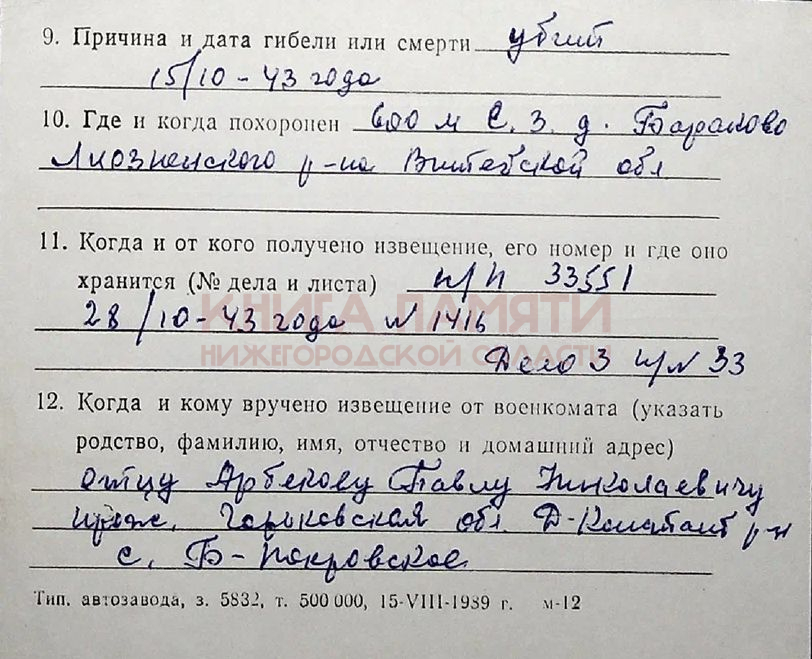 9. Причина и дата гибели или смерти убит
15/10-43 года
10. Где и когда похоронен 600 м С. З. д. Бараново
Лиозненского р-на Витебской обл
11. Когда и от кого получено извещение, его номер и где оно
хранится (№ дела и листа) п/п 33551
28/10-43 года N 1416
КНИГА ПАМЯТИ
НИЖЕГОРОДСКОЙ ОБЛАСТИ
Дело 3 N 33
12. Когда и кому вручено извещение от военкомата (указать
родство, фамилию, имя, отчество и домашний адрес)
отцу Арбекову Павлу Николаевичу
прож. Горьковская обл. Д-Констант р-н
с. Б-Покровское
Тип. автозавода, з. 5832, т. 500 000, 15-VIII-1989 г. м-12